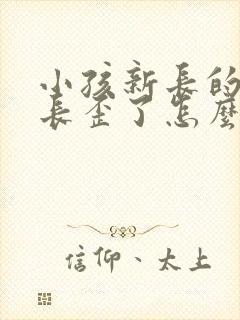 小孩新長的
長歪了怎麼
信仰、太上